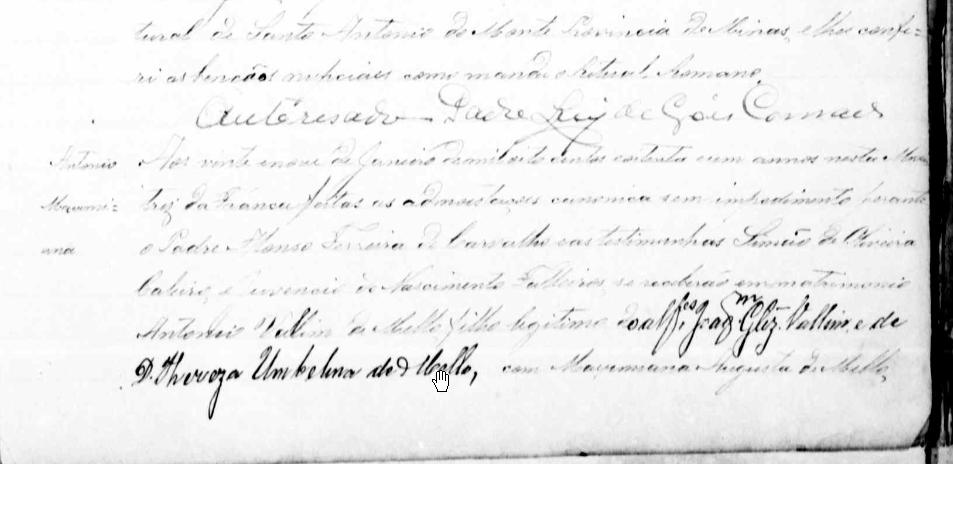 tural de Santo Antonio do Monte Provincia de Minas, e lhes confe-
ri as bençãos nupciaes como manda o Ritual Romano.
Autorisado Padre Luiz de Góis Conrad
Antonio
Maximi-
ana
Aos vinte e nove de Janeiro de mil oito centos setenta e um annos nesta Ma-
triz da Franca feitas as admoestações canonica sem impedimento perante
o Padre Alonso Ferreira de Carvalho e as testimunhas Simão de Oliveira
Caleiro, e Juvencio do Nascimento Falleiros se receberão em matrimonio
Antonio Vallim de Mello filho legitimo do alfes. Joaqm Glz. Vallim, e de
D. Thereza Umbelina de Mello, com Maximiana Augusta de Mello,